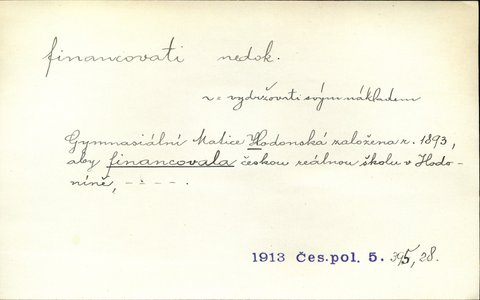 financovati nedok.
n = vydržovati svým nákladem
Gymnasiální Matice Hodonská založena r. 1893,
aby financovala českou reálnou školu v Hodo-
níně, - - - -.
1913 Čes. pol. 5. 395, 28.